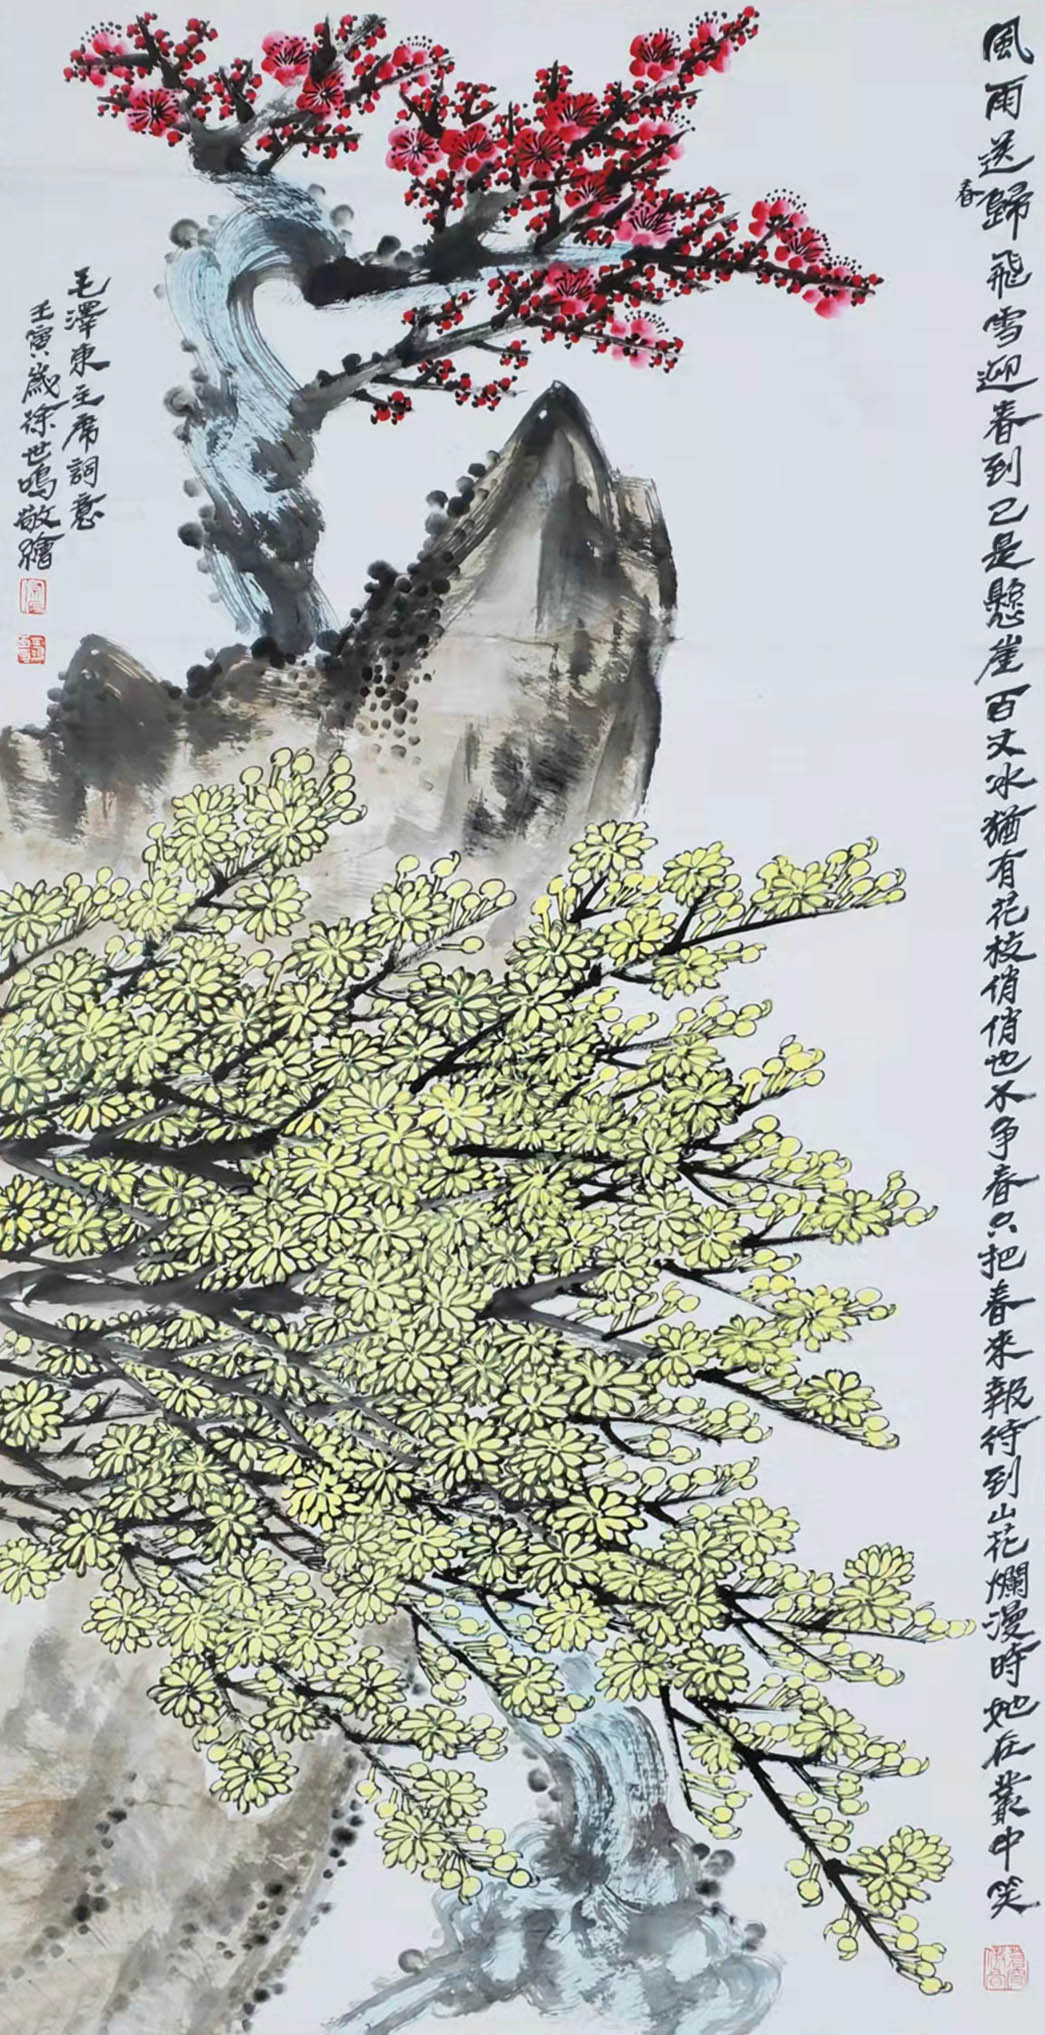 風雨送春歸飛雪迎春到已是懸崖百丈冰猶有花枝俏俏也不争春只把春來報待到山花爛漫時她在叢中笑
毛澤東主席詞意
壬寅歲徐世鳴敬繪